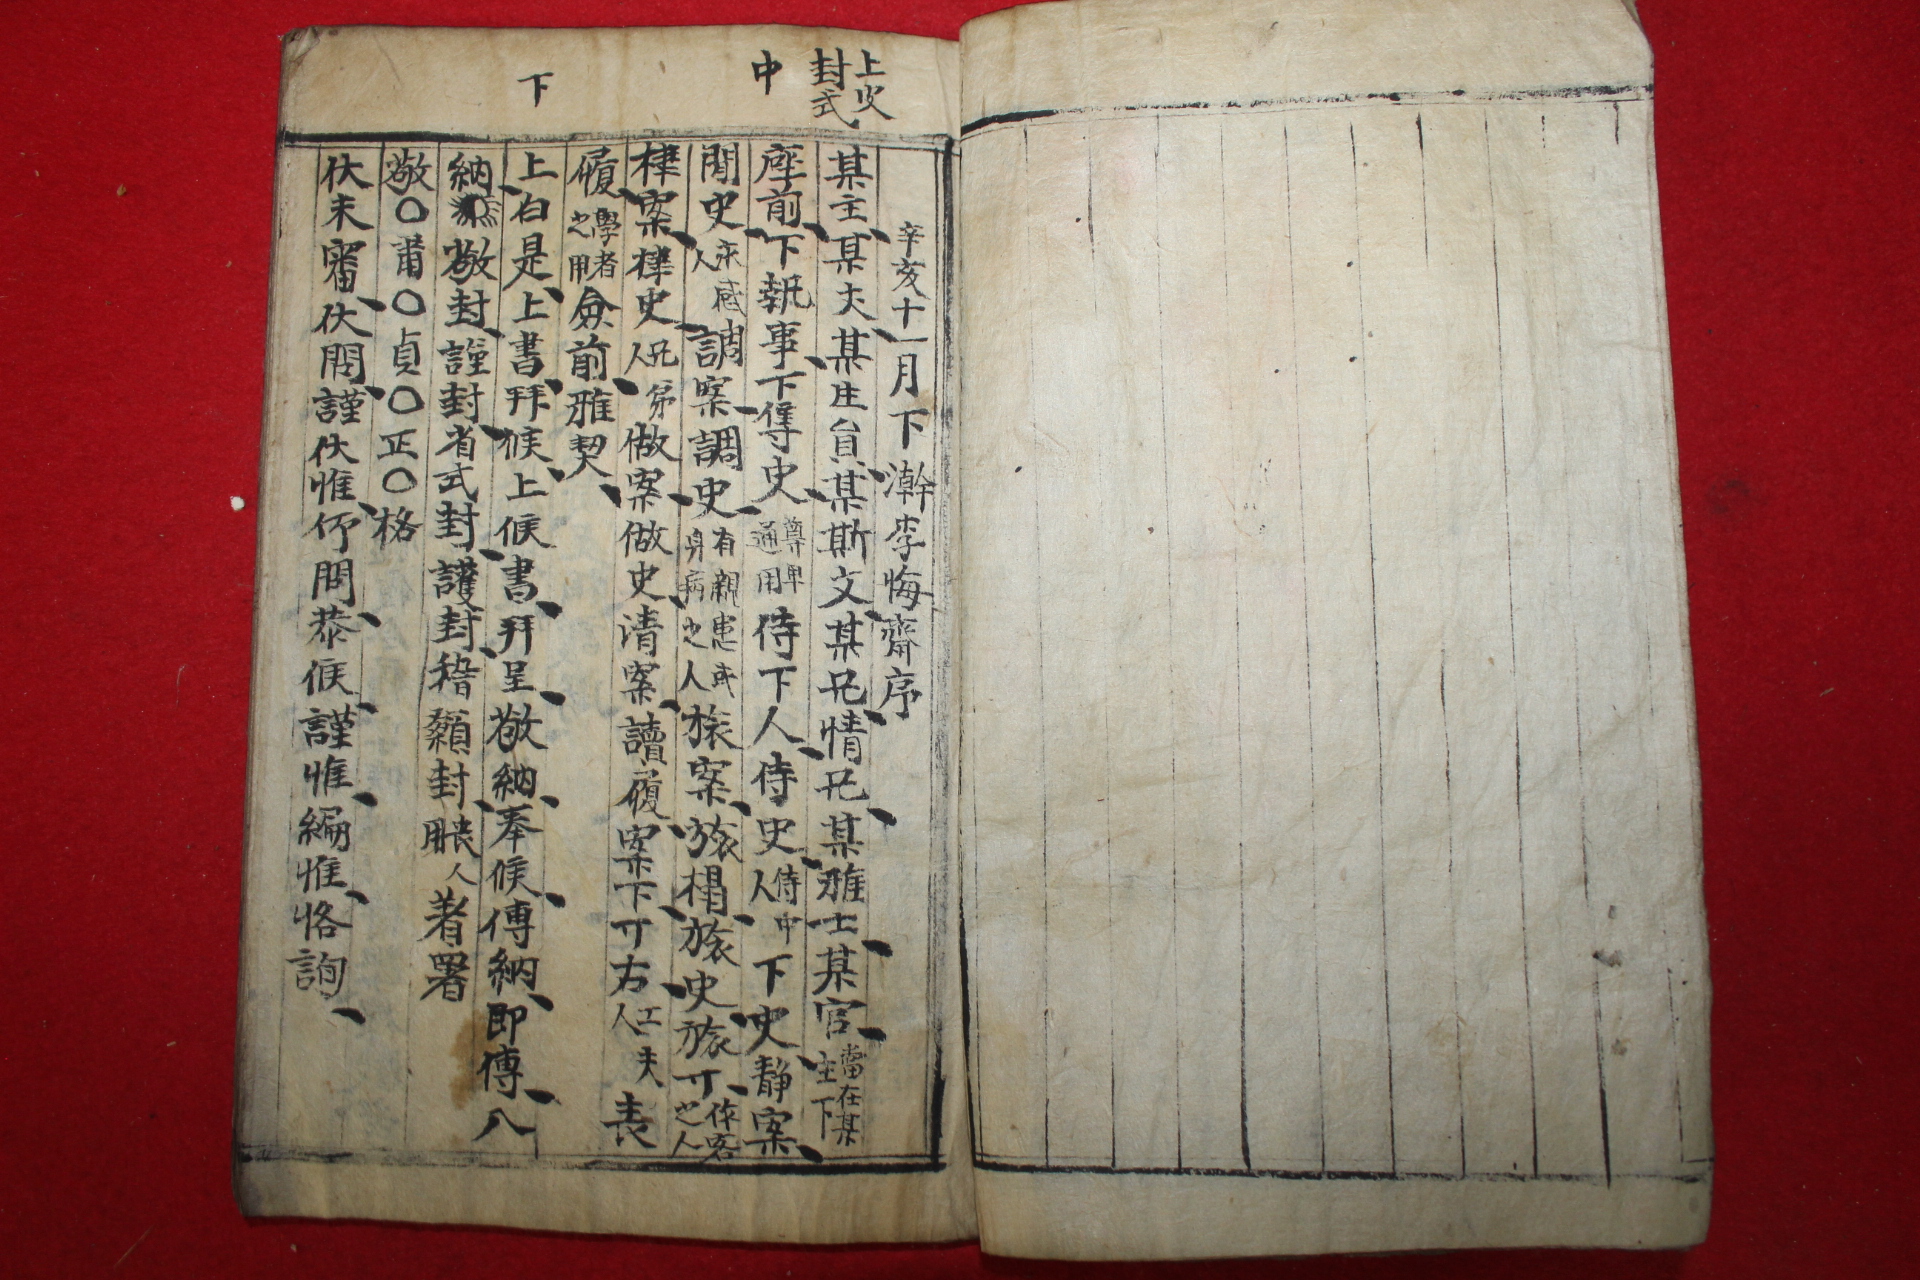 上皮
封式
中
下
辛亥十一月下澣李悔齋序
某主某丈某生員某斯文某兄情兄某雅士某官當在某主下
座前下執事下隼史尊卑通用侍下人侍史侍中人下史靜案
閒史求應人調案調史有親患或身病之人旅案旅榻旅史旅丌作客之人
棣案棣史兄弟人做案做史清案讀履案下丌右工夫人表
履學者之用僉前雅契
上白是上書拜候上候書拜呈敬納奉候傳納即傳入
納敬封謹封省式封護封稽顙封喪人用着署
敬〇莆〇貞〇正〇格
伏未審伏問謹伏惟伻問恭候謹惟編惟恪詢